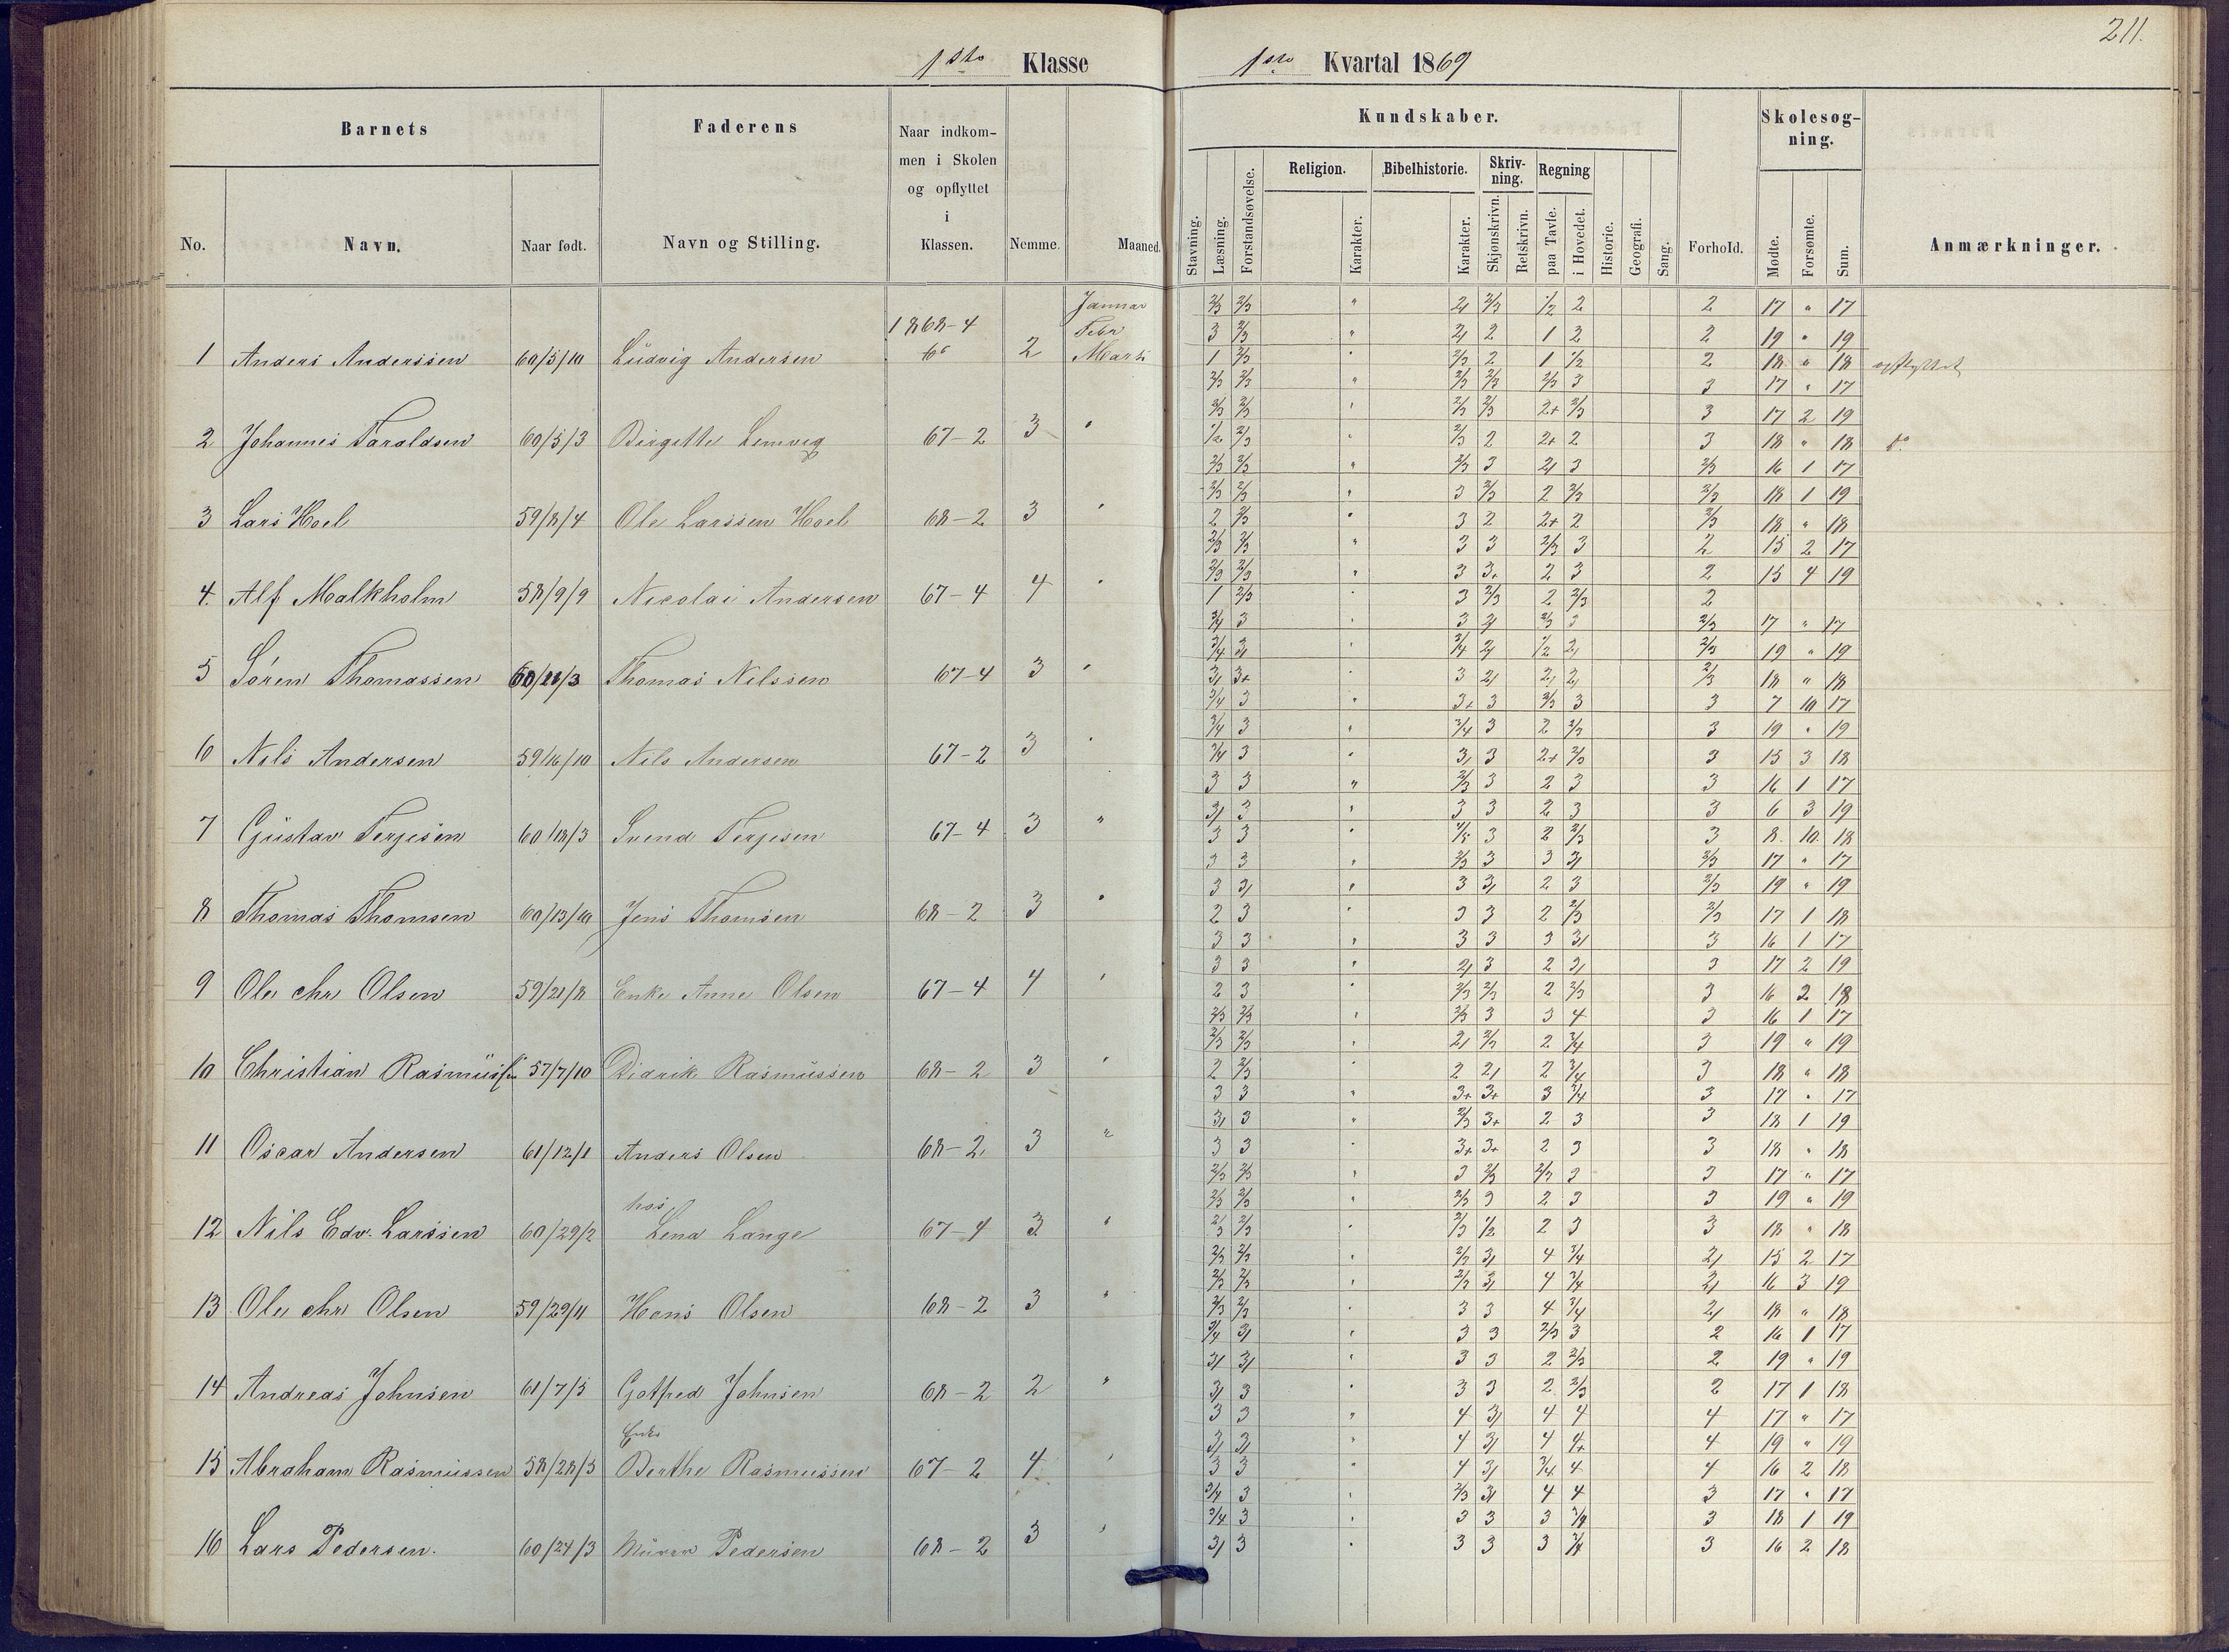 211.
1ste Klasse
1ste Kvartal 1869
Barnets
Faderens
Naar indkommen i Skolen og opflyttet i Klassen.
Nemme.
Maaned.
Kundskaber.
Forhold.
Skolesøgning.
Anmærkninger.
No. Navn. Naar født. Navn og Stilling.
Stavning. Læsning. Forstandsøvelse. Religion. Karakter. Bibelhistorie. Karakter. Skrivning. Skjønskrivn. Retskrivn. Regning paa Tavle. i Hovedet. Historie. Geografi. Sang. Mødte. Forsømte. Sum.
1 Anders Anderssen 60/5/10 Ludvig Andersen 1868-4 2 Januar Febr Marts
2 Johannes Taraldsen 60/5/3 Birgitte Lemvig 67-2 3 "
3 Lars Hoel 59/8/4 Ole Larssen Hoel 68-2 3 "
4. Alf Malkholm 58/9/9 Nicolai Andersen 67-4 4 "
5 Søren Thomassen Thomas Nilssen 67-4 3 "
6 Nils Andersen 59/16/10 Nils Andersen 67-2 3 "
7 Gustav Terjesen 60/18/3 Svend Terjesen 67-4 3 "
8 Thomas Thomsen 60/13/10 Jens Thomsen 68-2 3 "
9 Ole Chr Olsen 59/21/8 Enke Anne Olsen 67-4 4 "
10 Christian Rasmussen 57/7/10 Didrik Rasmussen 68-2 3 "
11 Oscar Andersen 61/12/1 Anders Olsen 68-2 3 "
12 Nils Edv. Larssen 60/29/2 hos Lena Lange 67-4 3 "
13 Ole Chr Olsen 59/29/11 Hans Olsen 68-2 3 "
14 Andreas Johnsen 61/7/5 Gotfred Johnsen 68-2 2 "
15 Abraham Rasmussen 58/28/5 Enke Berthe Rasmussen 67-2 4 "
16 Lars Pedersen. 60/24/3 Pedersen 68-2 3 "
2/3 2/3 " 2/ 2/3 1/2 2 2 17 " 17
3 2/3 " 2/ 2 1 2 2 19 " 19
1 2/3 " 2/3 2 1 1/2 2 18 " 18 opflyttet
2/3 2/3 " 2/3 2/3 2/3 3 3 17 " 17
2/3 2/3 " 2/3 2/3 2+ 2/3 3 17 2 19
1/2 2/3 " 2/3 2 2+ 2 3 18 " 18 do.
2/3 2/3 " 2/3 3 2/ 3 2/3 16 1 17
2/3 2/3 " 3 2/3 2 2/3 2/3 18 1 19
2 2/3 " 3 2 2+ 2 2/3 18 " 18
2/3 2/3 " 3 3 2/3 3 2 15 2 17
2/3 2/3 " 3 3+ 2 3 2 15 4 19
1 2/3 " 3 2/3 2 2/3 2
3/4 3 " 3 2/ 2/3 3 2/3 17 " 17
3/4 3/ " 3/4 2/ 1/2 2/ 2/3 19 " 19
3/ 3+ " 3 2/ 2/ 2/ 2/3 18 " 18
3/4 3 " 3+ 3 2/3 3 3 7 10 17
3/4 3 " 3/4 3 2 2/3 3 19 " 19
3/4 3 " 3/ 3 2+ 2/3 3 15 3 18
3 3 " 2/3 3 2 3 3 16 1 17
3/ 3 " 3 3 2 3 3 6 3 19
3 3 " 3 2 2/3 3 8. 10. 18
3 3 " 2/3 3 3 3/ 2/3 17 " 17
3 3/ " 3 3/ 2 3 2/3 19 " 19
2 3 " 3 3 2 2/3 2/3 17 1 18
3 3 " 3 3 3 3/ 3 16 1 17
3 3 " 2/ 3 2 3/ 3 17 2 19
2 3 " 2/3 2/3 2 2/3 3 16 2 18
2/3 2/3 " 2/3 3 3 4 3 16 1 17
2/3 2/3 " 2/ 2/3 2 3/4 3 19 " 19
2 2/3 " 2 2/ 2 3/4 3 18 " 18
3 3 " 3+ 3+ 3 3/4 3 17 " 17
3/ 3 " 2/3 3+ 2 3 3 18 1 19
3 3 " 3+ 3+ 2 3 3 18 " 18
2/3 2/3 " 3 2/3 2/3 3 3 17 " 17
2/3 2/3 " 2/3 3 2 3 3 19 " 19
2/3 2/3 " 2/3 1/2 2 3 3 18 " 18
2/3 2/3 " 2/3 3/ 4 3/4 2/ 15 2 17
2/3 2/3 " 2/3 3/ 4 3/4 2/ 16 3 19
2/3 2/3 " 3 3 4 3/4 2/ 18 " 18
3/4 3/ " 3 3 2/3 3 2 16 1 17
3/ 3/ " 3 3 2 2/3 2 19 " 19
3/ 3 " 3 3 2 2/3 2 17 1 18
3 3 " 4 3/ 4 4 4 17 " 17
3/ 3/ " 4 3/ 4 4+ 4 19 " 19
3 3 " 4 3/ 3/4 4 4 16 2 18
3/4 3 " 2/3 3/ 4 4 3 17 " 17
3/4 3 " 3 3 3 3/4 3 18 1 19
3/ 3 " 3 3 3 3/4 3 16 2 18